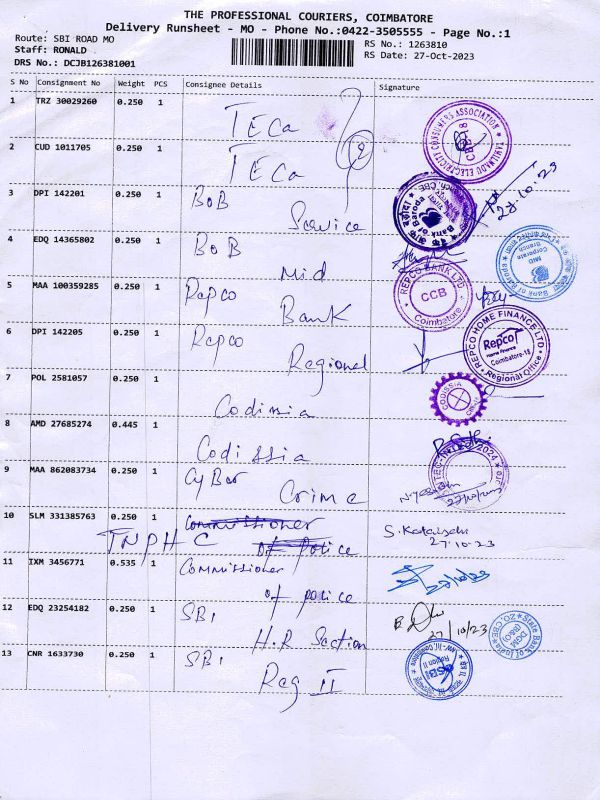 THE PROFESSIONAL COURIERS, COIMBATORE
Delivery Runsheet - MO - Phone No.:0422-3505555 - Page No.:1
Route: SBI ROAD MO
RS No.: 1263810
Staff: RONALD
RS Date: 27-Oct-2023
DRS No.: DCJB126381001
S No Consignment No Weight PCS Consignee Details Signature
1 TRZ 30029260 0.250 1 TECa
TAMILNADU ELECTRICITY CONSUMERS ASSOCIATION CBE-18
2 CUD 1011705 0.250 1 TECa
3 DPI 142201 0.250 1 BOB Service
Bank of Baroda
27.10.23
4 EDQ 14365802 0.250 1 BOB Mid
Bank of Baroda MID Corporate Branch
5 MAA 100359285 0.250 1 Repco Bank
REPCO BANK LTD CCB Coimbatore
6 DPI 142205 0.250 1 Repco Regional
REPCO HOME FINANCE LTD Repco Home Finance Coimbatore-18 Regional Office
7 POL 2581057 0.250 1 Codissia
CODISSIA
8 AMD 27685274 0.445 1 Codissia
2024
9 MAA 862083734 0.250 1 CyBar Crime
10 SLM 331385763 0.250 1 Commissioner of police
TNPHC
27.10.23
11 IXM 3456771 0.535 1 Commissioner of police
27/10/23
12 EDQ 23254182 0.250 1 SBI H.R Section
27/10/23
State Bank of India DGM (B&O) ZO, CBE
13 CNR 1633730 0.250 1 SBI Reg II
SBI Region II